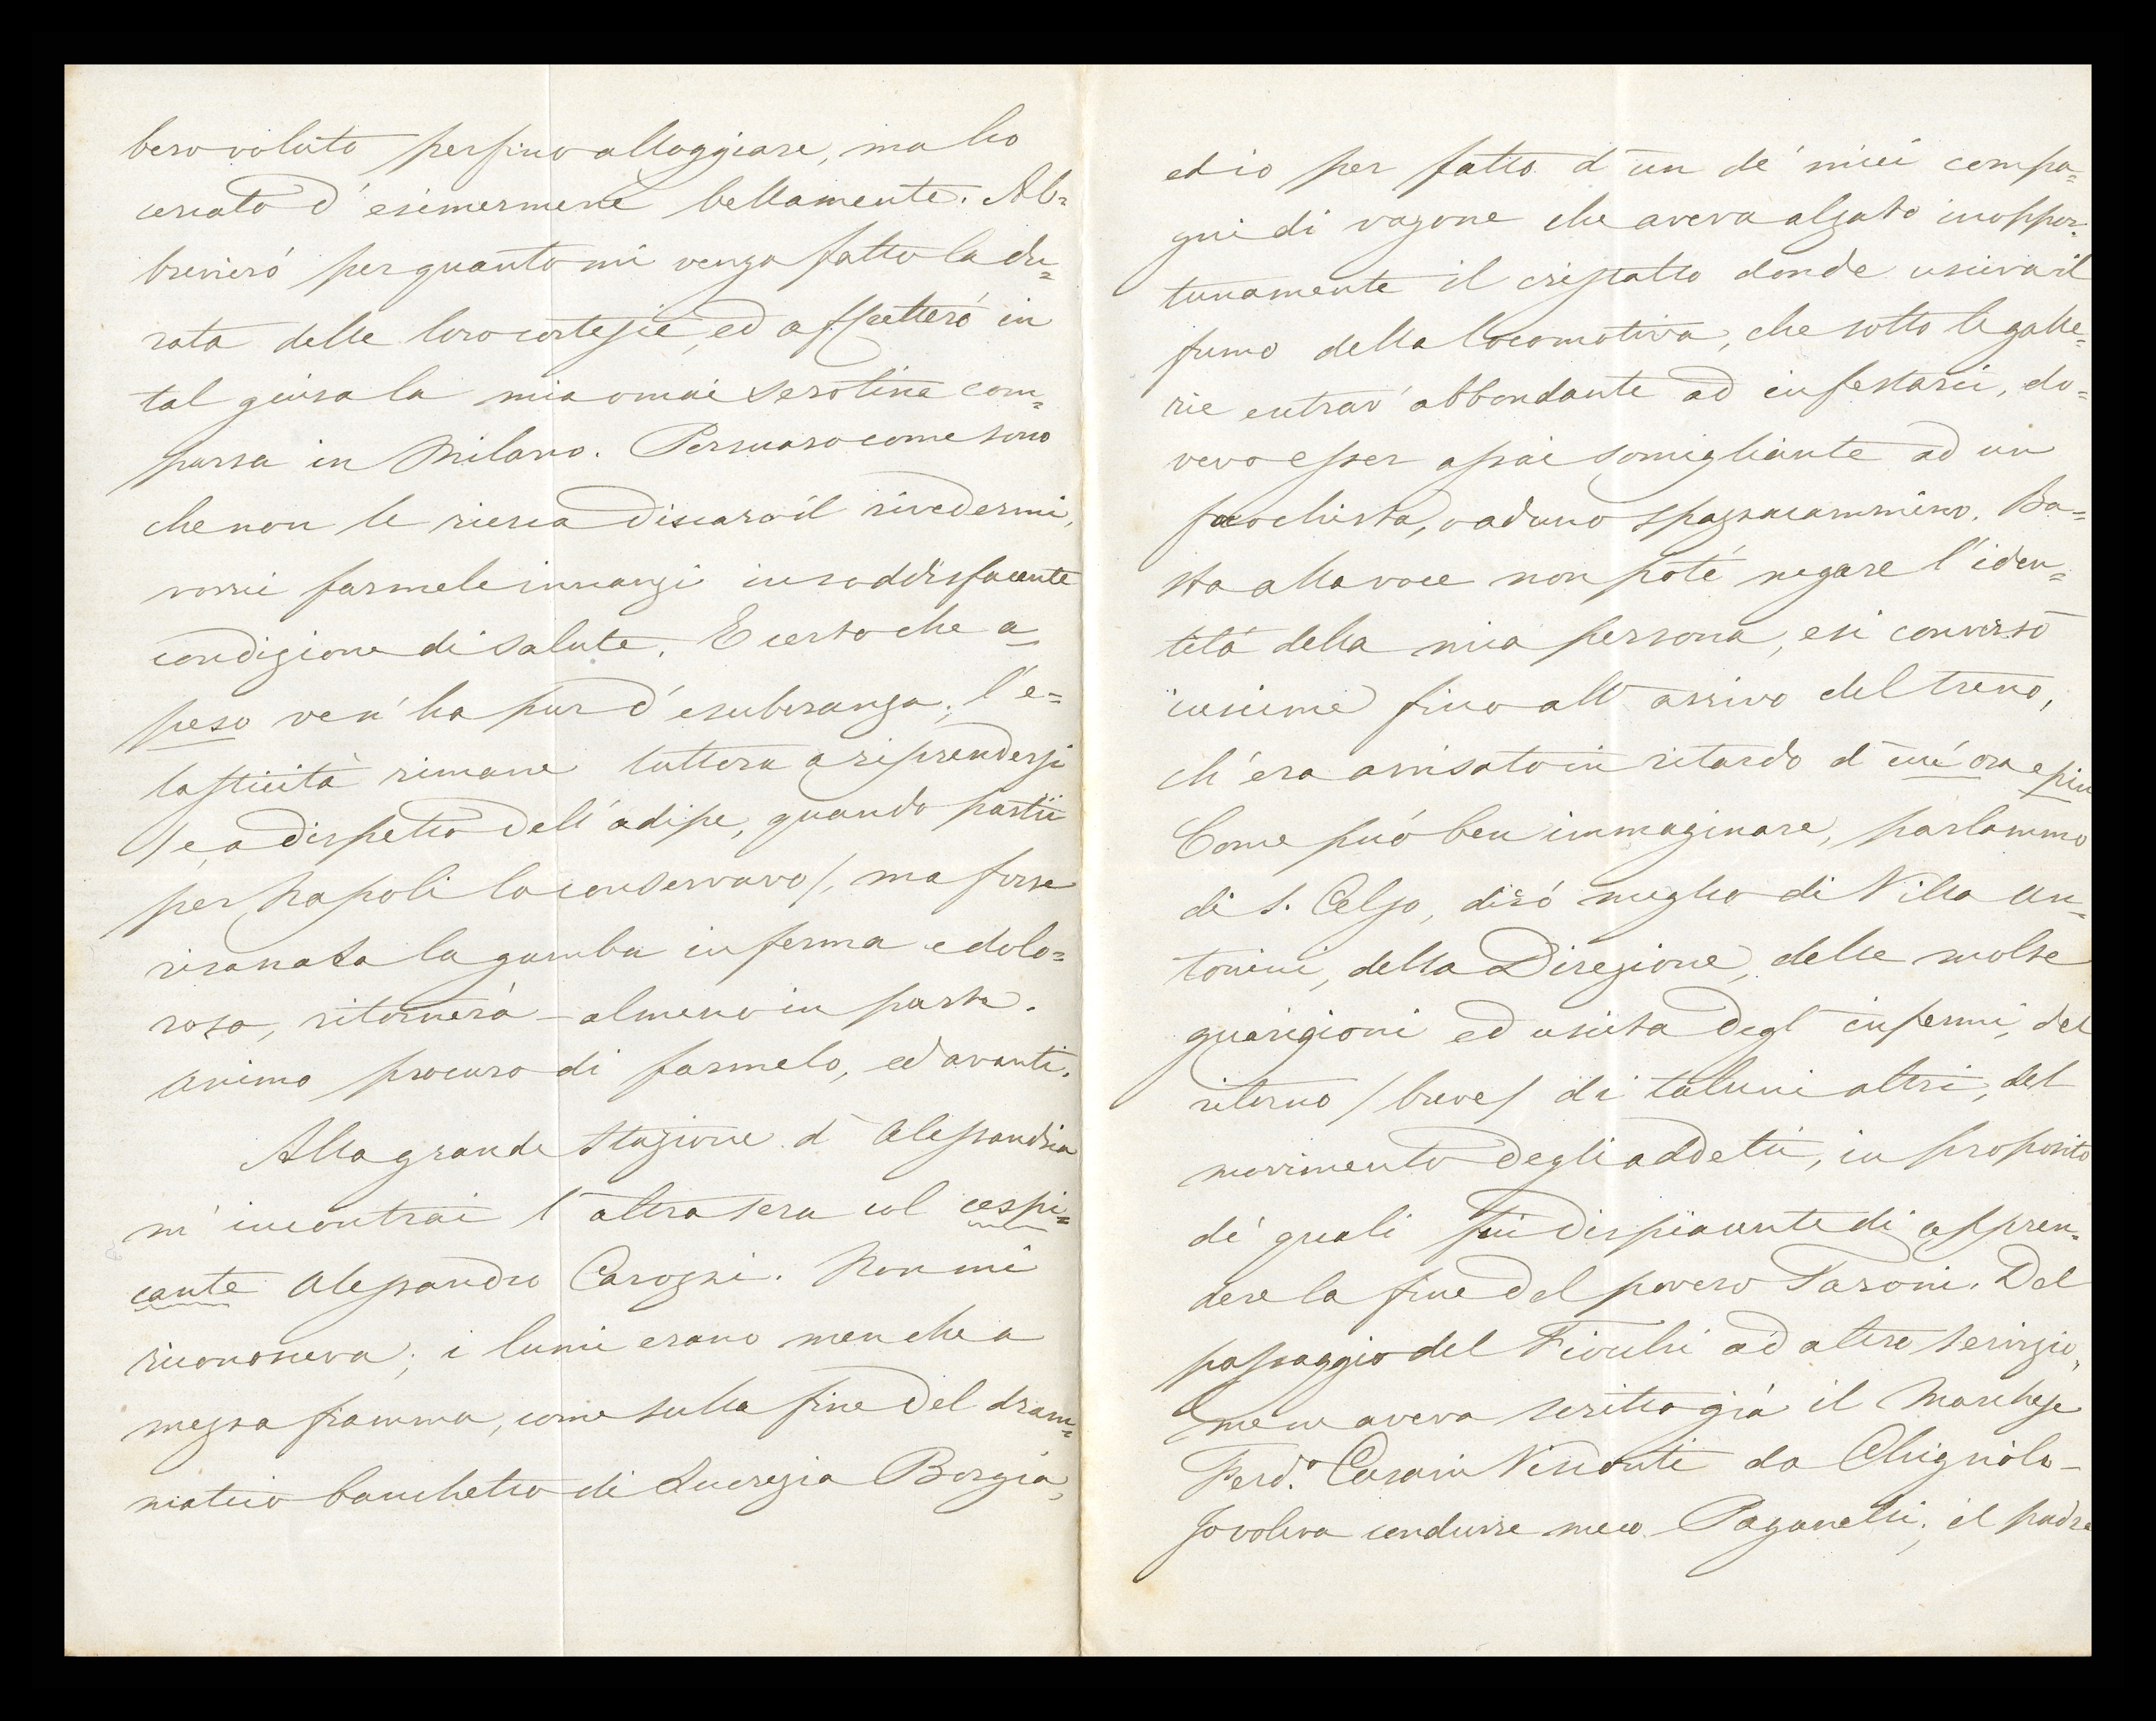 bero voluto perfino alloggiare, ma ho
cercato d'esimermene bellamente. Ab=
brevierò per quanto mi venga fatto la du=
rata delle loro cortesie, ed affretterò in
tal guisa la mia omai serotina com=
parsa in Milano. Persuaso come sono
che non le riesca discaro il rivedermi,
vorrei farmele innanzi in soddisfacente
condizione di salute. E certo che a
peso ve n'ha pur d'esuberanza; l'e=
lasticità rimane tuttora a riprendersi
/e, a dispetto dell'adipe, quando partii
per Napoli la conservavo/, ma forse
risanata la gamba inferma e dolo=
rosa, ritornerà - almeno in parte.
Animo procuro di farmelo, ed avanti.
Alla grande Stazione d'Alessandria
m'incontrai l'altra sera col cespi=
cante Alessandro Carozzi. Non mi
riconosceva; i lumi erano men che a
mezza fiamma, come sulla fine del dram=
matico banchetto di Lucrezia Borgia,
ed io per fatto d'un de' miei compa=
gni di vagone che aveva alzato inoppor=
tunamente il cristallo donde usciva il
fumo della locomotiva, che sotto le galle=
rie entrav' abbondante ad infestarci, do=
vevo esser assai somigliante ad un
fuochista, o ad uno spazzacammino. Ba=
sta alla voce non poté negare l'iden=
tità della mia persona, e si conversò
insieme fino all'arrivo del treno,
ch'era avvisato in ritardo d'un'ora e più
Come può ben immaginare, parlammo
di S. Celso, dirò meglio di Villa An=
tonini, della Direzione, delle molte
guarigioni ed uscita degl'infermi, del
ritorno /breve/ di taluni altri, del
movimento degli addetti, in proposito
de' quali fui dispiacente di appren=
dere la fine del povero Taroni. Del
passaggio del Fiorulli ad altro servizio,
me ne aveva scritto già il Marchese
Ferd.º Cusani Visconti da Chignolo -
Io voleva condurre meco Paganelli; il padre